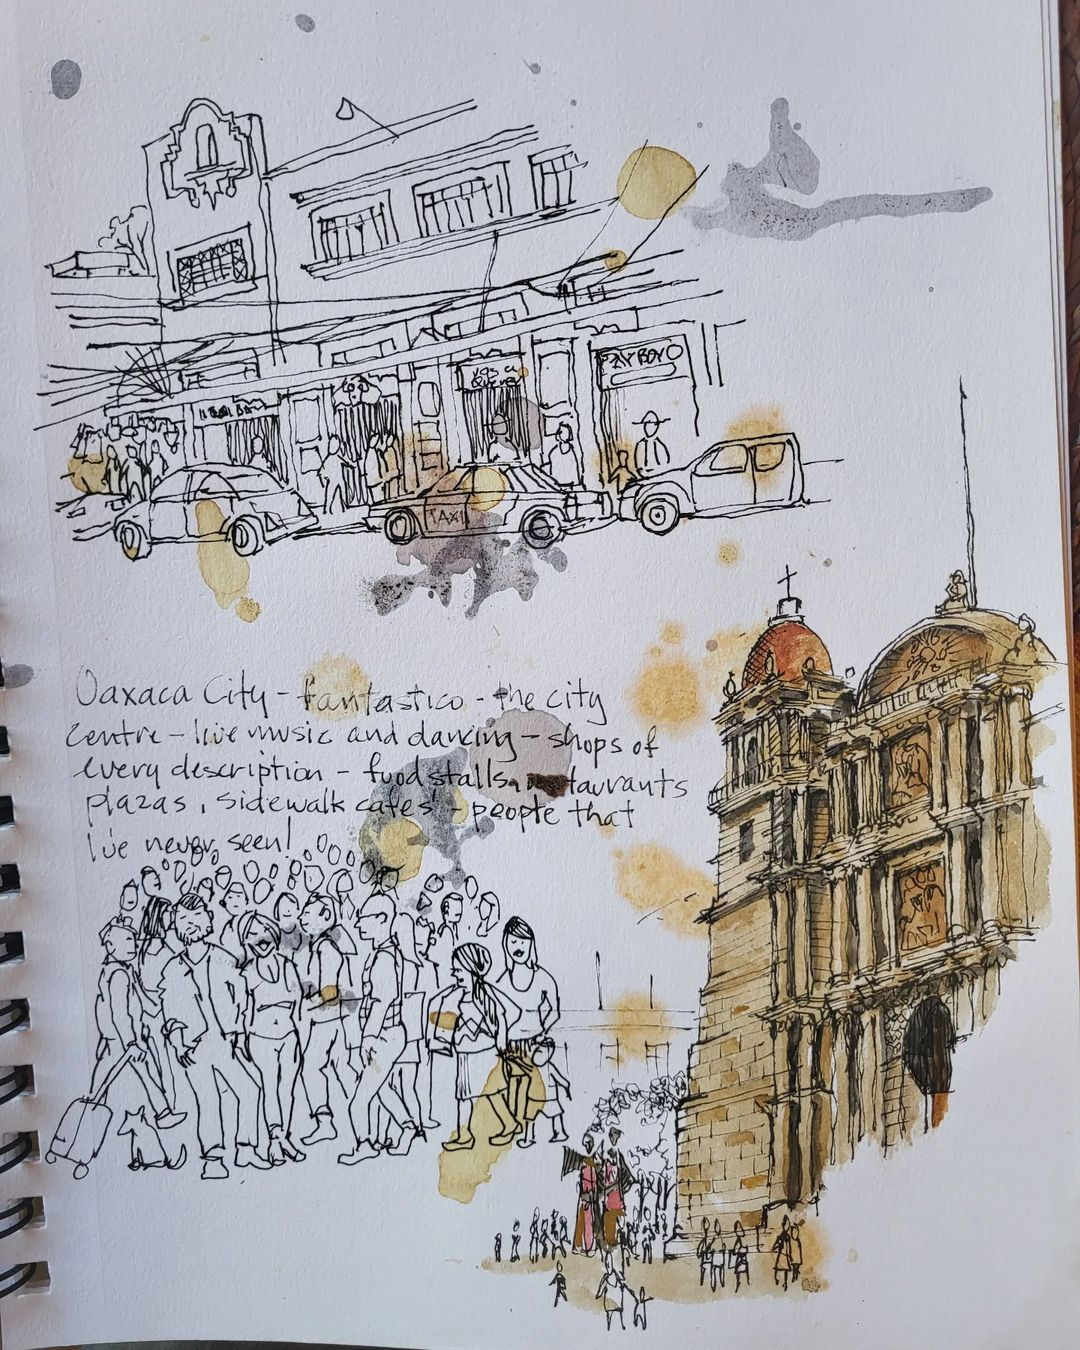 PAYBOYO
TAXI
Oaxaca City - fantastico - the city
centre - live music and dancing - shops of
every description - food stalls, restaurants
plazas, sidewalk cafes - people that
I've never seen!